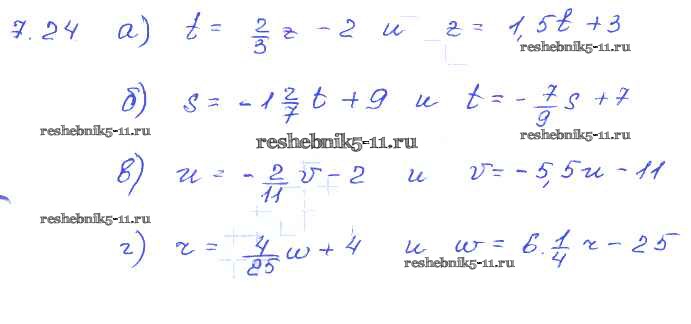 7.24 а) t = 2/3 z - 2 и z = 1,5t + 3
reshebnik5-11.ru
б) s = -1 2/7 t + 9 и t = - 7/9 s + 7
reshebnik5-11.ru reshebnik5-11.ru reshebnik5-11.ru
в) u = - 2/11 v - 2 и v = -5,5u - 11
reshebnik5-11.ru
г) r = 4/25 w + 4 и w = 6.1/4 r - 25
reshebnik5-11.ru